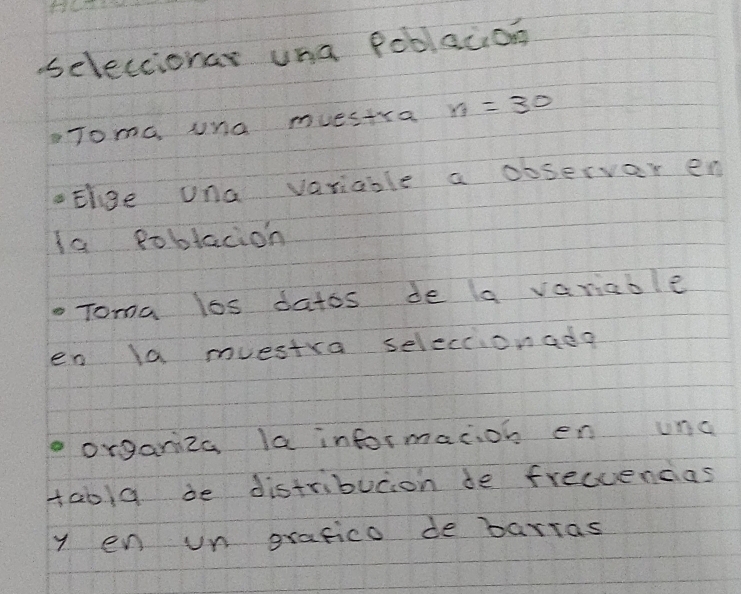 seleccionar una Población
• Toma una muestra n = 30
• Elige una variable a observar en
la Población
• Toma los datos de la variable
en la muestra seleccionada
• organiza la información en una
tabla de distribución de frecuencias
y en un grafico de barras